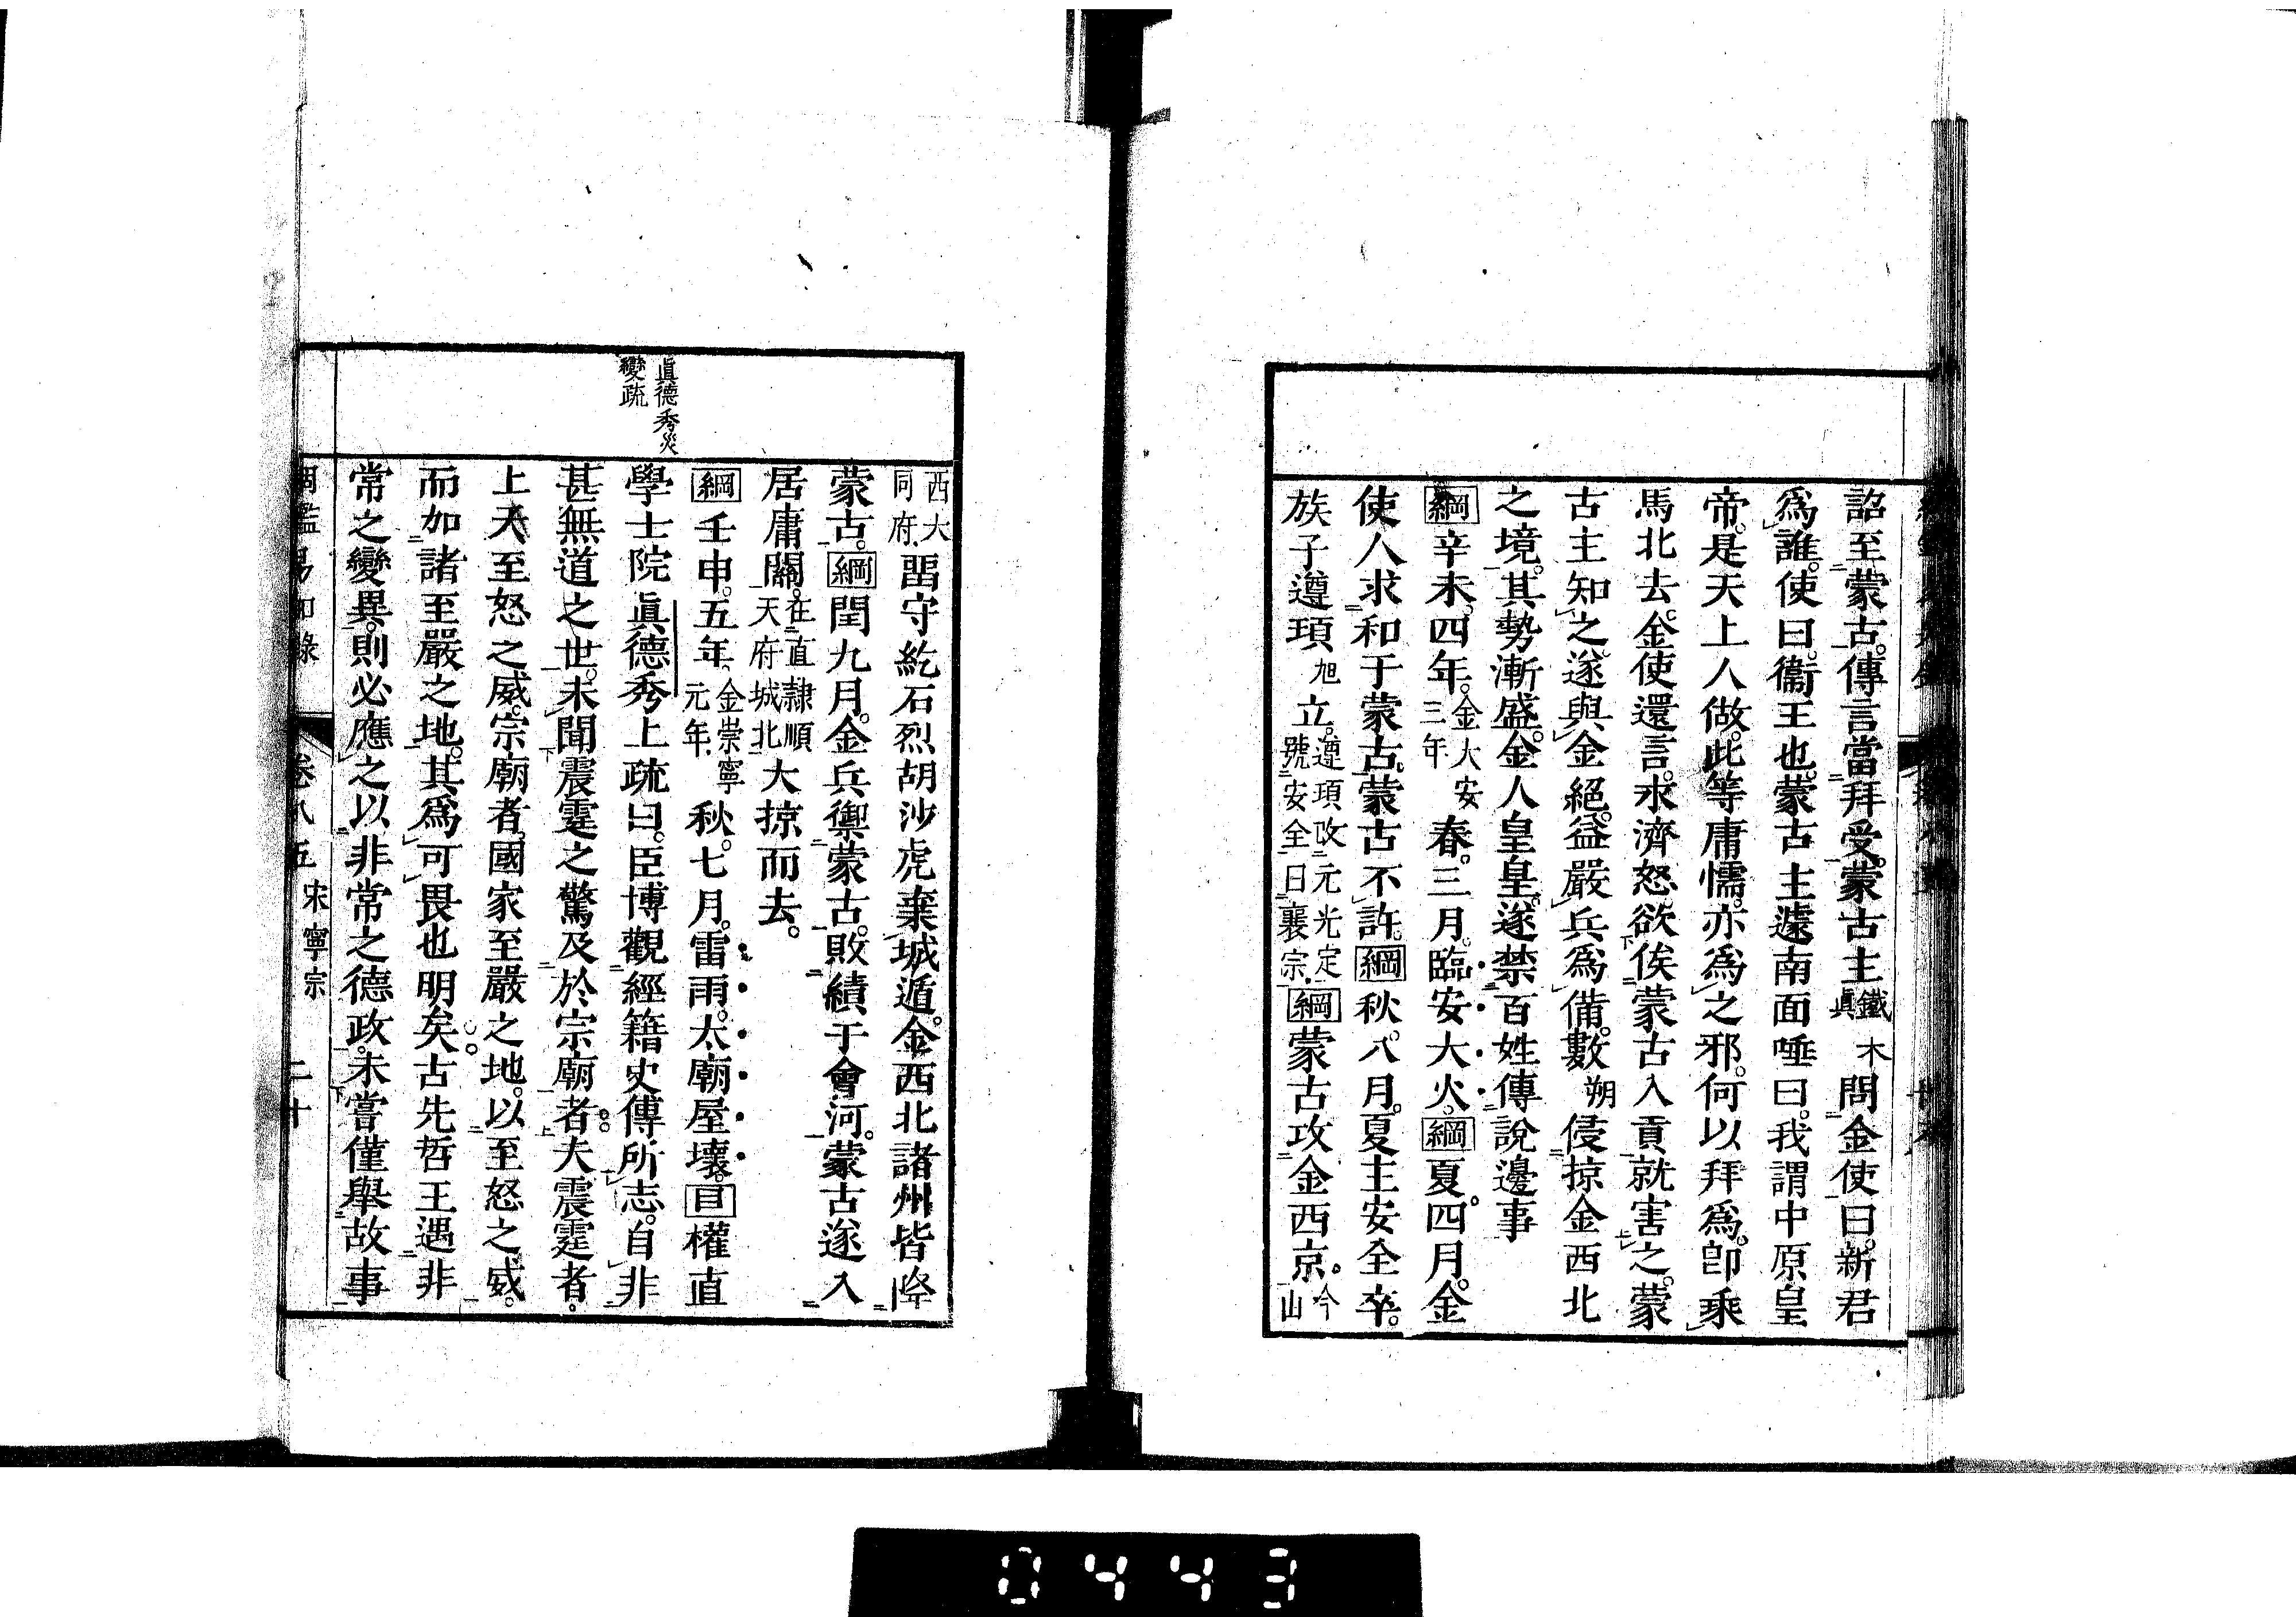 詔至蒙古。傳言當拜受。蒙古主鐵木眞問金使曰。新君
爲誰。使曰。衞王也。蒙古主遽南面唾曰。我謂中原皇
帝。是天上人做。此等庸懦。亦爲之邪。何以拜爲。卽乘
馬北去。金使還言。永濟怒。欲俟蒙古入貢就害之。蒙
古主知之。遂與金絕。益嚴兵爲備。數朔侵掠金西北
之境。其勢漸盛。金人皇皇。遂禁百姓傳說邊事
綱辛未。四年。金大安三年春。三月。臨安大火。綱夏。四月。金
使人求和于蒙古。蒙古不許。綱秋。八月。夏主安全卒。
族子遵頊旭立。遵頊改元光定號安全曰襄宗綱蒙古攻金西京。今山
西大同府畱守紇石烈胡沙虎棄城遁。金西北諸州皆降
蒙古。綱閏九月。金兵禦蒙古。敗績于會河。蒙古遂入
居庸關。在直隸順天府城北大掠而去。
綱壬申。五年。金崇寧元年秋。七月。雷雨。太廟屋壞。目權直
學士院眞德秀上疏曰。臣博觀經籍史傳所志。自非
甚無道之世。未聞震霆之驚及於宗廟者。夫震霆者。
上天至怒之威。宗廟者。國家至嚴之地。以至怒之威。
而加諸至嚴之地。其爲可畏也明矣。古先哲王遇非
常之變異。則必應之以非常之德政。未嘗僅舉故事
眞德秀災
變疏
綱鑑易知錄 卷八五 宋寧宗 二十
0443